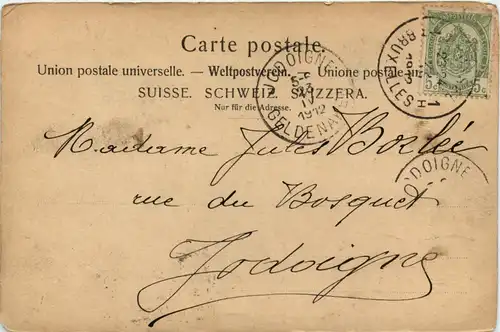 Carte postale.
Union postale universelle. — Weltpostverein. — Unione postale
SUISSE. SCHWEIZ. SVIZZERA.
Nur für die Adresse.
JODOIGNE
GELDENAKEN
BRUXELLES 1
Madame Jules Borlée
rue du Bosquet
Jodoigne
JODOIGNE